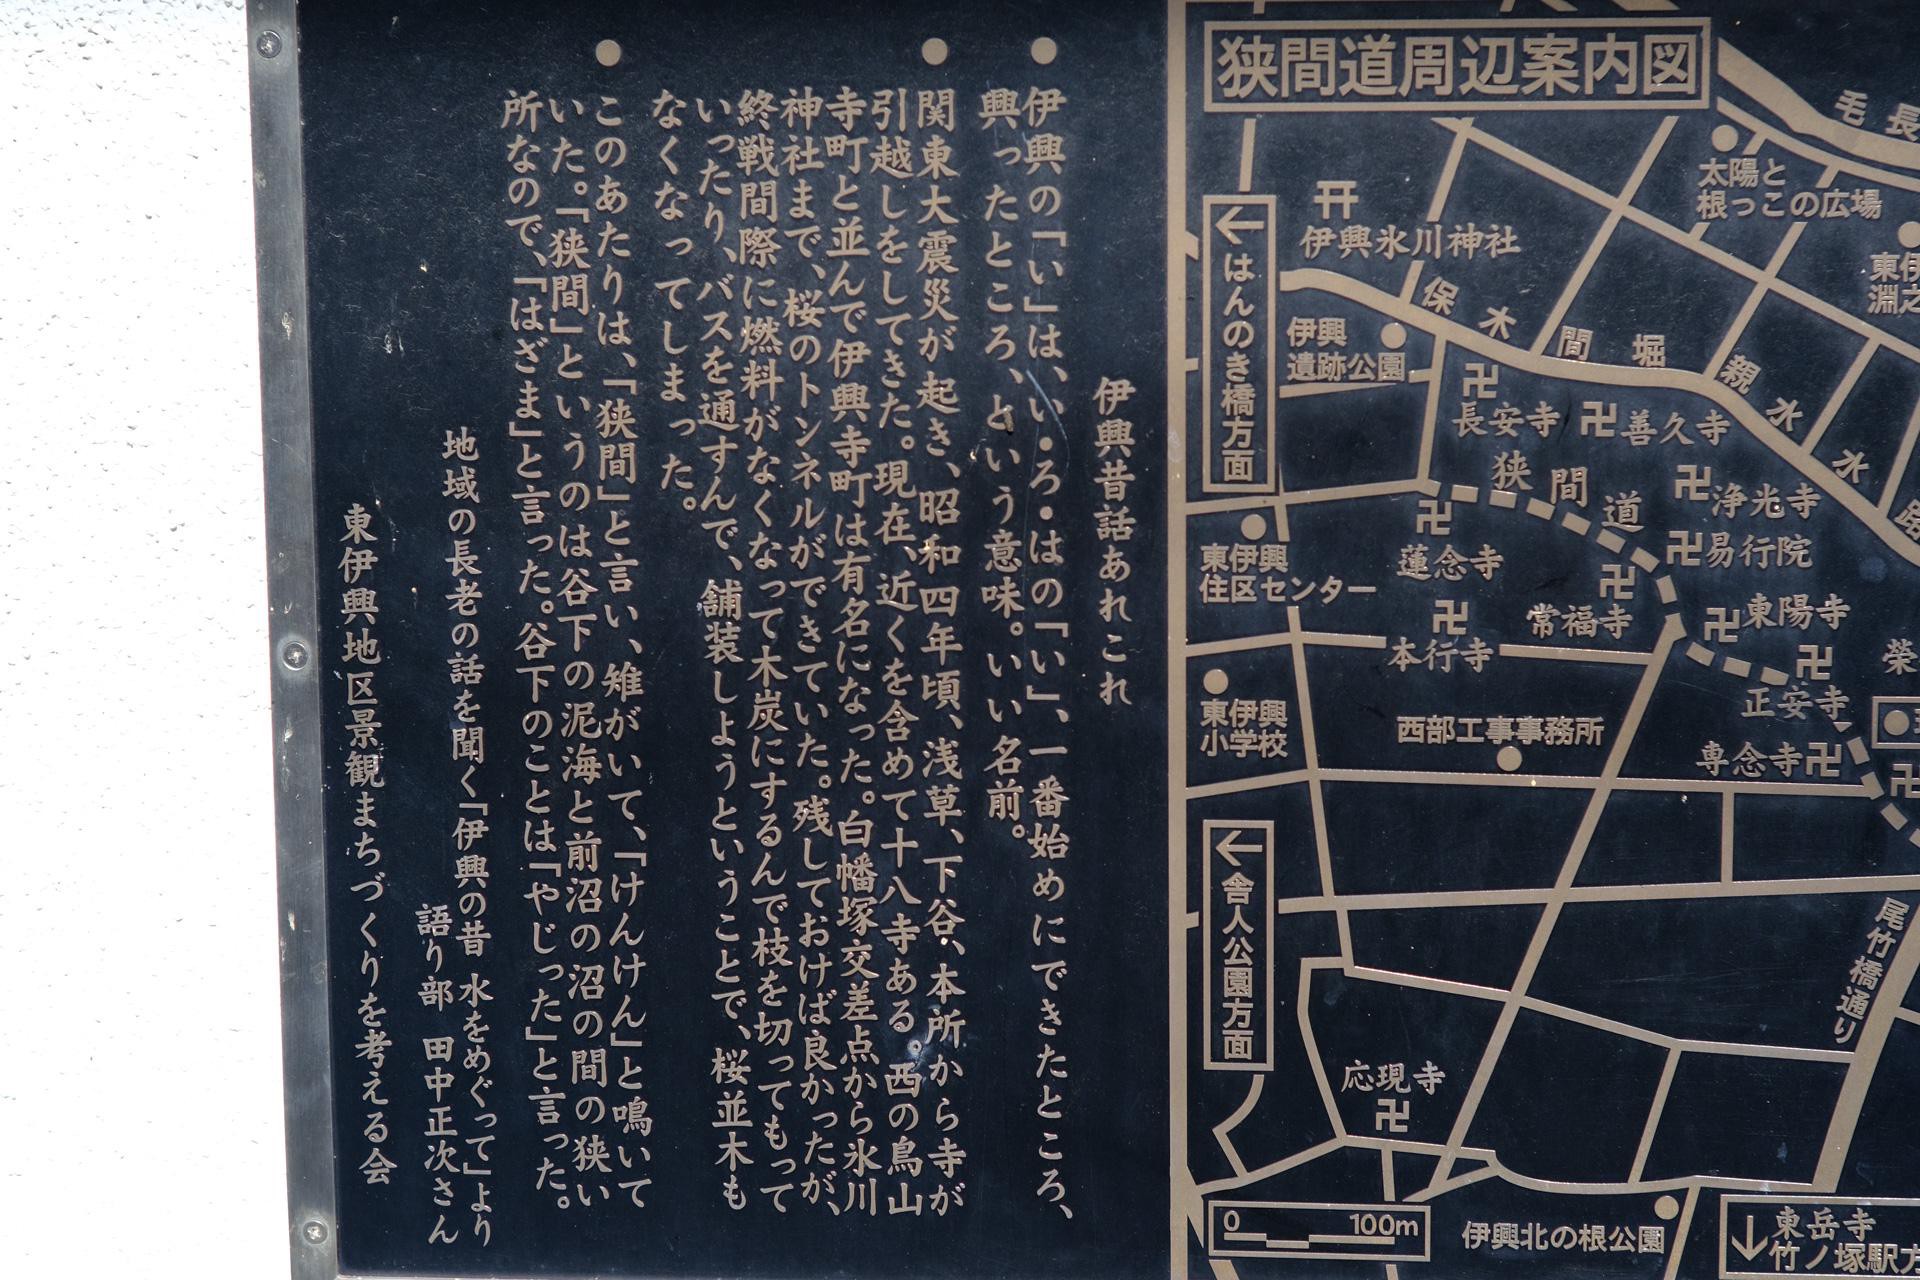 伊興昔話あれこれ
●伊興の「い」は、い・ろ・はの「い」、一番始めにできたところ、
興ったところ、という意味。いい名前。
●関東大震災が起き、昭和四年頃、浅草、下谷、本所から寺が
引越しをしてきた。現在、近くを含めて十八寺ある。西の鳥山
寺町と並んで伊興寺町は有名になった。白幡塚交差点から氷川
神社まで、桜のトンネルができていた。残しておけば良かったが、
終戦間際に燃料がなくなって木炭にするんで枝を切ってもって
いったり、バスを通すんで、舗装しようということで、桜並木も
なくなってしまった。
●このあたりは、「狭間」と言い、雉がいて、「けんけん」と鳴いて
いた。「狭間」というのは谷下の泥海と前沼の沼の間の狭い
所なので、「はざま」と言った。谷下のことは「やじった」と言った。
地域の長老の話を聞く「伊興の昔 水をめぐって」より
語り部 田中正次さん
東伊興地区景観まちづくりを考える会
狭間道周辺案内図
毛長
太陽と
根っこの広場
伊興氷川神社
←はんのき橋方面
保木間堀親水水路
伊興
遺跡公園
東伊
淵之
卍
長安寺
卍善久寺
狭間道
卍浄光寺
卍易行院
卍
蓮念寺
卍
常福寺
東伊興
住区センター
卍
本行寺
卍東陽寺
卍
正安寺
栄
東伊興
小学校
西部工事事務所
専念寺卍
卍
←舎人公園方面
尾竹橋通り
応現寺
卍
0 100m
伊興北の根公園
↓東岳寺
竹ノ塚駅方